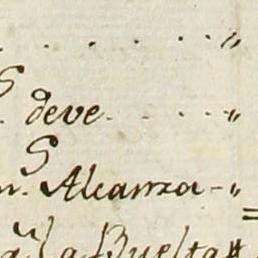 . . . . . . "
S deve. . . . "
S
n. Alcanza - "
a la Buelta #